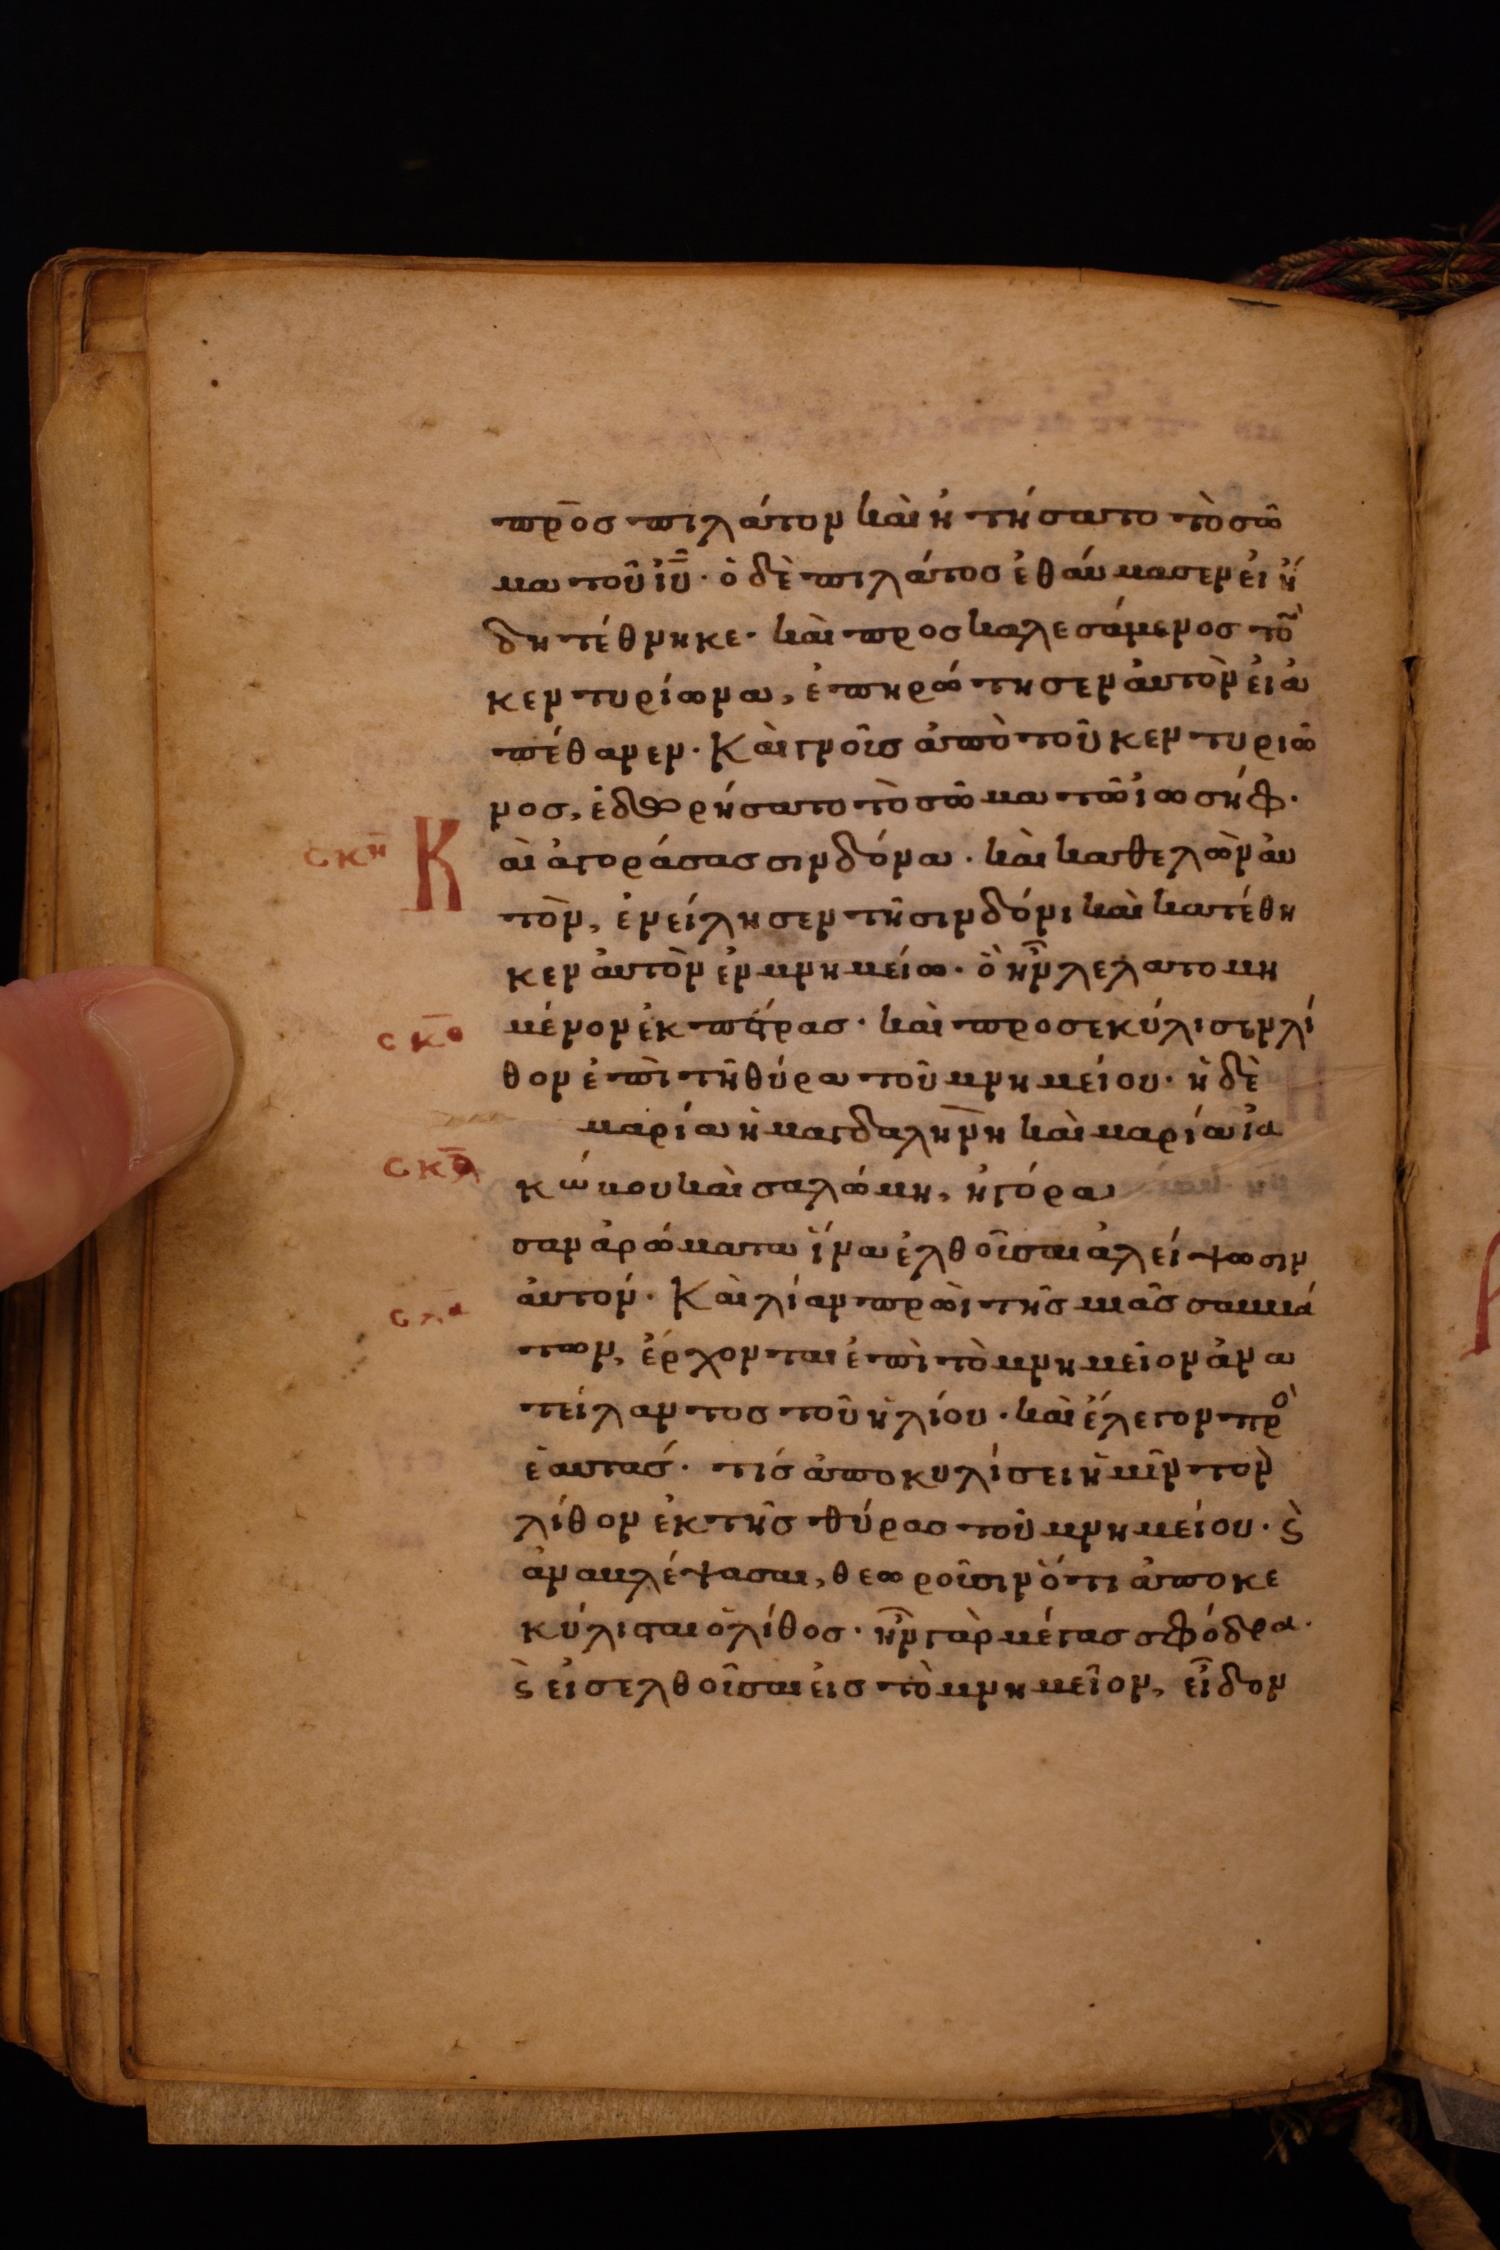 πρὸς πιλάτον καὶ ἠτήσατο τὸ σῶ
μα τοῦ ἰῦ· ὁ δὲ πιλάτος ἐθαύμασεν εἰ ἤ
δη τέθνηκε· καὶ προσκαλεσάμενος τὸ
κεντυρίωνα, ἐπηρώτησεν ἀυτὸν εἰ ἀ
πέθανεν· Καὶ γνοῦς ἀπὸ τοῦ κεντυριῶ
νος, ἐδωρήσατο τὸ σῶμα τῶ ἰωσήφ·
σκη Κ
αὶ ἀγοράσας σινδόνα· καὶ καθελὼν ἀυ
τὸν, ἐνείλησεν τῆ σινδόνι καὶ κατέθη
κεν ἀυτὸν ἐν μνημείω· ὃ ἦν λελατομη
σκθ
μένον ἐκ πέτρας· καὶ προσεκύλισεν λί
θον ἐπὶ τῆ θύρα τοῦ μνημείου· ἡ δὲ
μαρία ἡ μαγδαληνὴ καὶ μαρία ἰα
σκλ
κώβου καὶ σαλώμη, ἠγόρα
σαν ἀρώματα ἵνα ἐλθοῦσαι ἀλείψωσιν
σλα
ἀυτόν· Καὶ λίαν πρωῒ τῆς μιᾶς σαββά
των, ἔρχονται ἐπὶ τὸ μνημεῖον ἀνα
τείλαντος τοῦ ἡλίου· καὶ ἔλεγον πρὸ
ἑαυτάς· τίς ἀποκυλίσει ἡμῖν τὸν
λίθον ἐκ τῆς θύρας τοῦ μνημείου· ϛ̀
ἀναβλέψασαι, θεωροῦσιν ὅτι ἀποκε
κύλισται ὁ λίθος· ἦν γὰρ μέγας σφόδρα·
ϛ̀ εἰσελθοῦσαι εἰς τὸ μνημεῖον, εἶδον